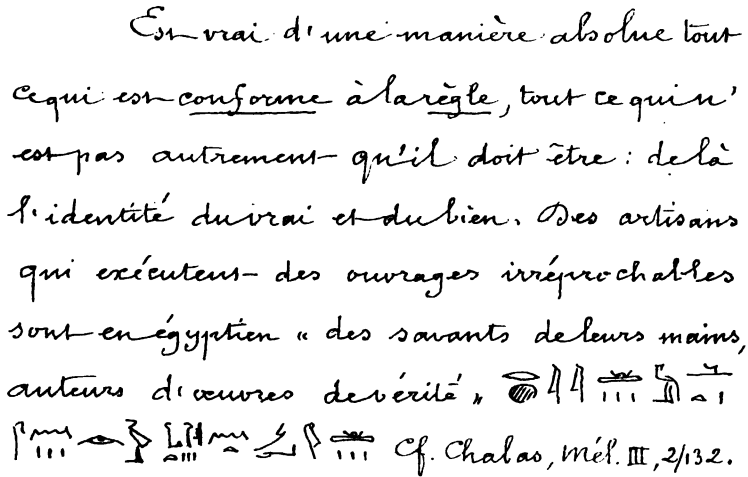 Est vrai d'une manière absolue tout
ce qui est conforme à la règle, tout ce qui n'
est pas autrement qu'il doit être : de là
l'identité du vrai et du bien. Des artisans
qui exécutent des ouvrages irréprochables
sont en égyptien « des savants de leurs mains,
auteurs d'œuvres de vérité »
Cf. Chabas, Mél. III, 2/132.